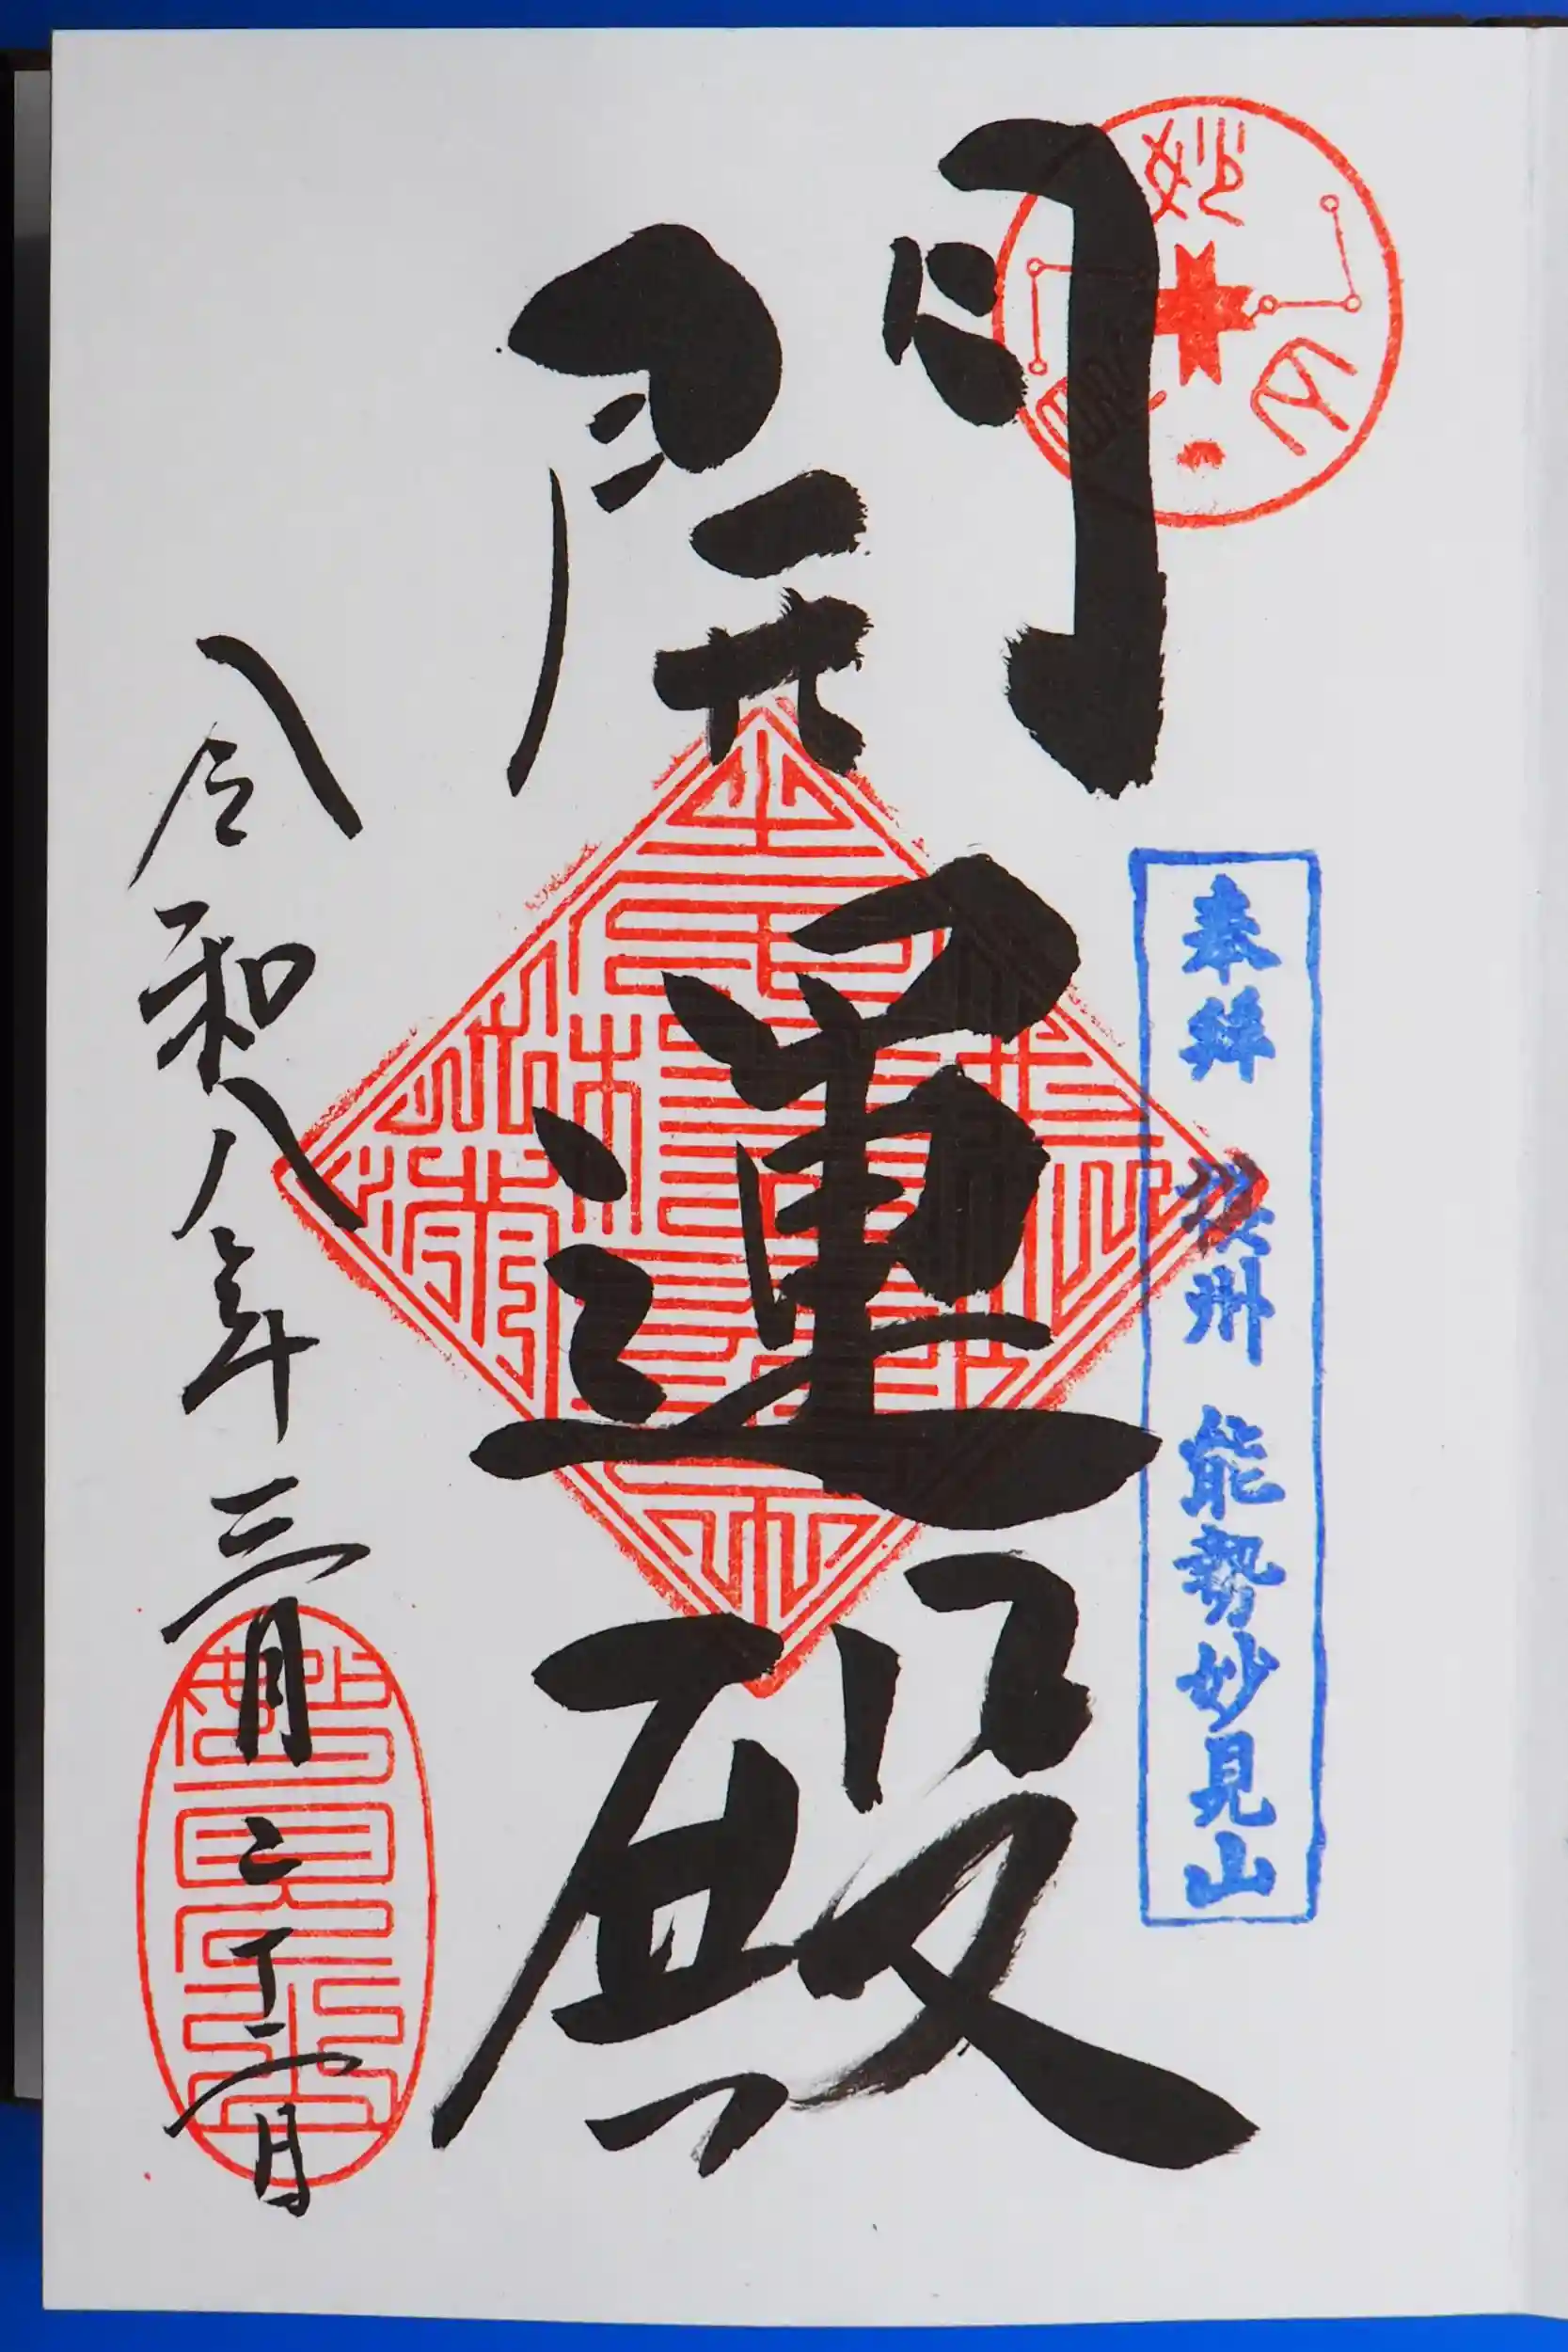 妙見山
奉拝 摂州 能勢妙見山
開運殿
令和八年三月二十二日